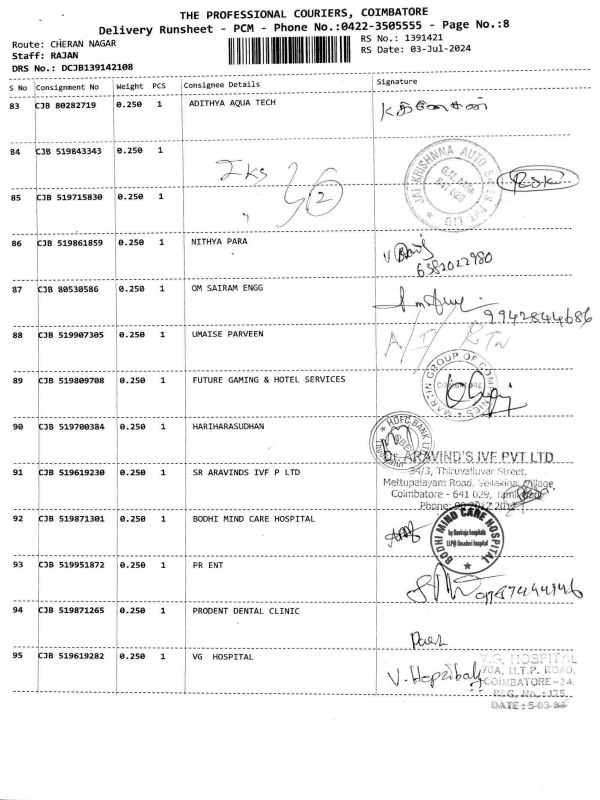 THE PROFESSIONAL COURIERS, COIMBATORE
Delivery Runsheet - PCM - Phone No.:0422-3505555 - Page No.:8
Route: CHERAN NAGAR
RS No.: 1391421
Staff: RAJAN
RS Date: 03-Jul-2024
DRS No.: DCJB139142108
S No Consignment No Weight PCS Consignee Details Signature
83 CJB 80282719 0.250 1 ADITHYA AQUA TECH
84 CJB 519843343 0.250 1
JAI KRISHNANA AUTO
85 CJB 519715830 0.250 1 " 2
86 CJB 519861859 0.250 1 NITHYA PARA
6382022980
87 CJB 80530586 0.250 1 OM SAIRAM ENGG
9942844686
88 CJB 519907305 0.250 1 UMAISE PARVEEN
89 CJB 519809708 0.250 1 FUTURE GAMING & HOTEL SERVICES
MARTIN GROUP OF COMPANIES
90 CJB 519700384 0.250 1 HARIHARASUDHAN
HDFC BANK
Dr. ARAVIND'S IVF PVT LTD
91 CJB 519619230 0.250 1 SR ARAVINDS IVF P LTD
34/3, Thiruvalluvar Street,
Mettupalayam Road, Vellakinar Village
Coimbatore - 641 029,
92 CJB 519871301 0.250 1 BODHI MIND CARE HOSPITAL
BODHI MIND CARE HOSPITAL
by Deviraja hospitals
93 CJB 519951872 0.250 1 PR ENT
94 CJB 519871265 0.250 1 PRODENT DENTAL CLINIC
95 CJB 519619282 0.250 1 VG HOSPITAL
V.G. HOSPITAL
M.T.P. ROAD,
COIMBATORE - 34.
REG. No.: 175